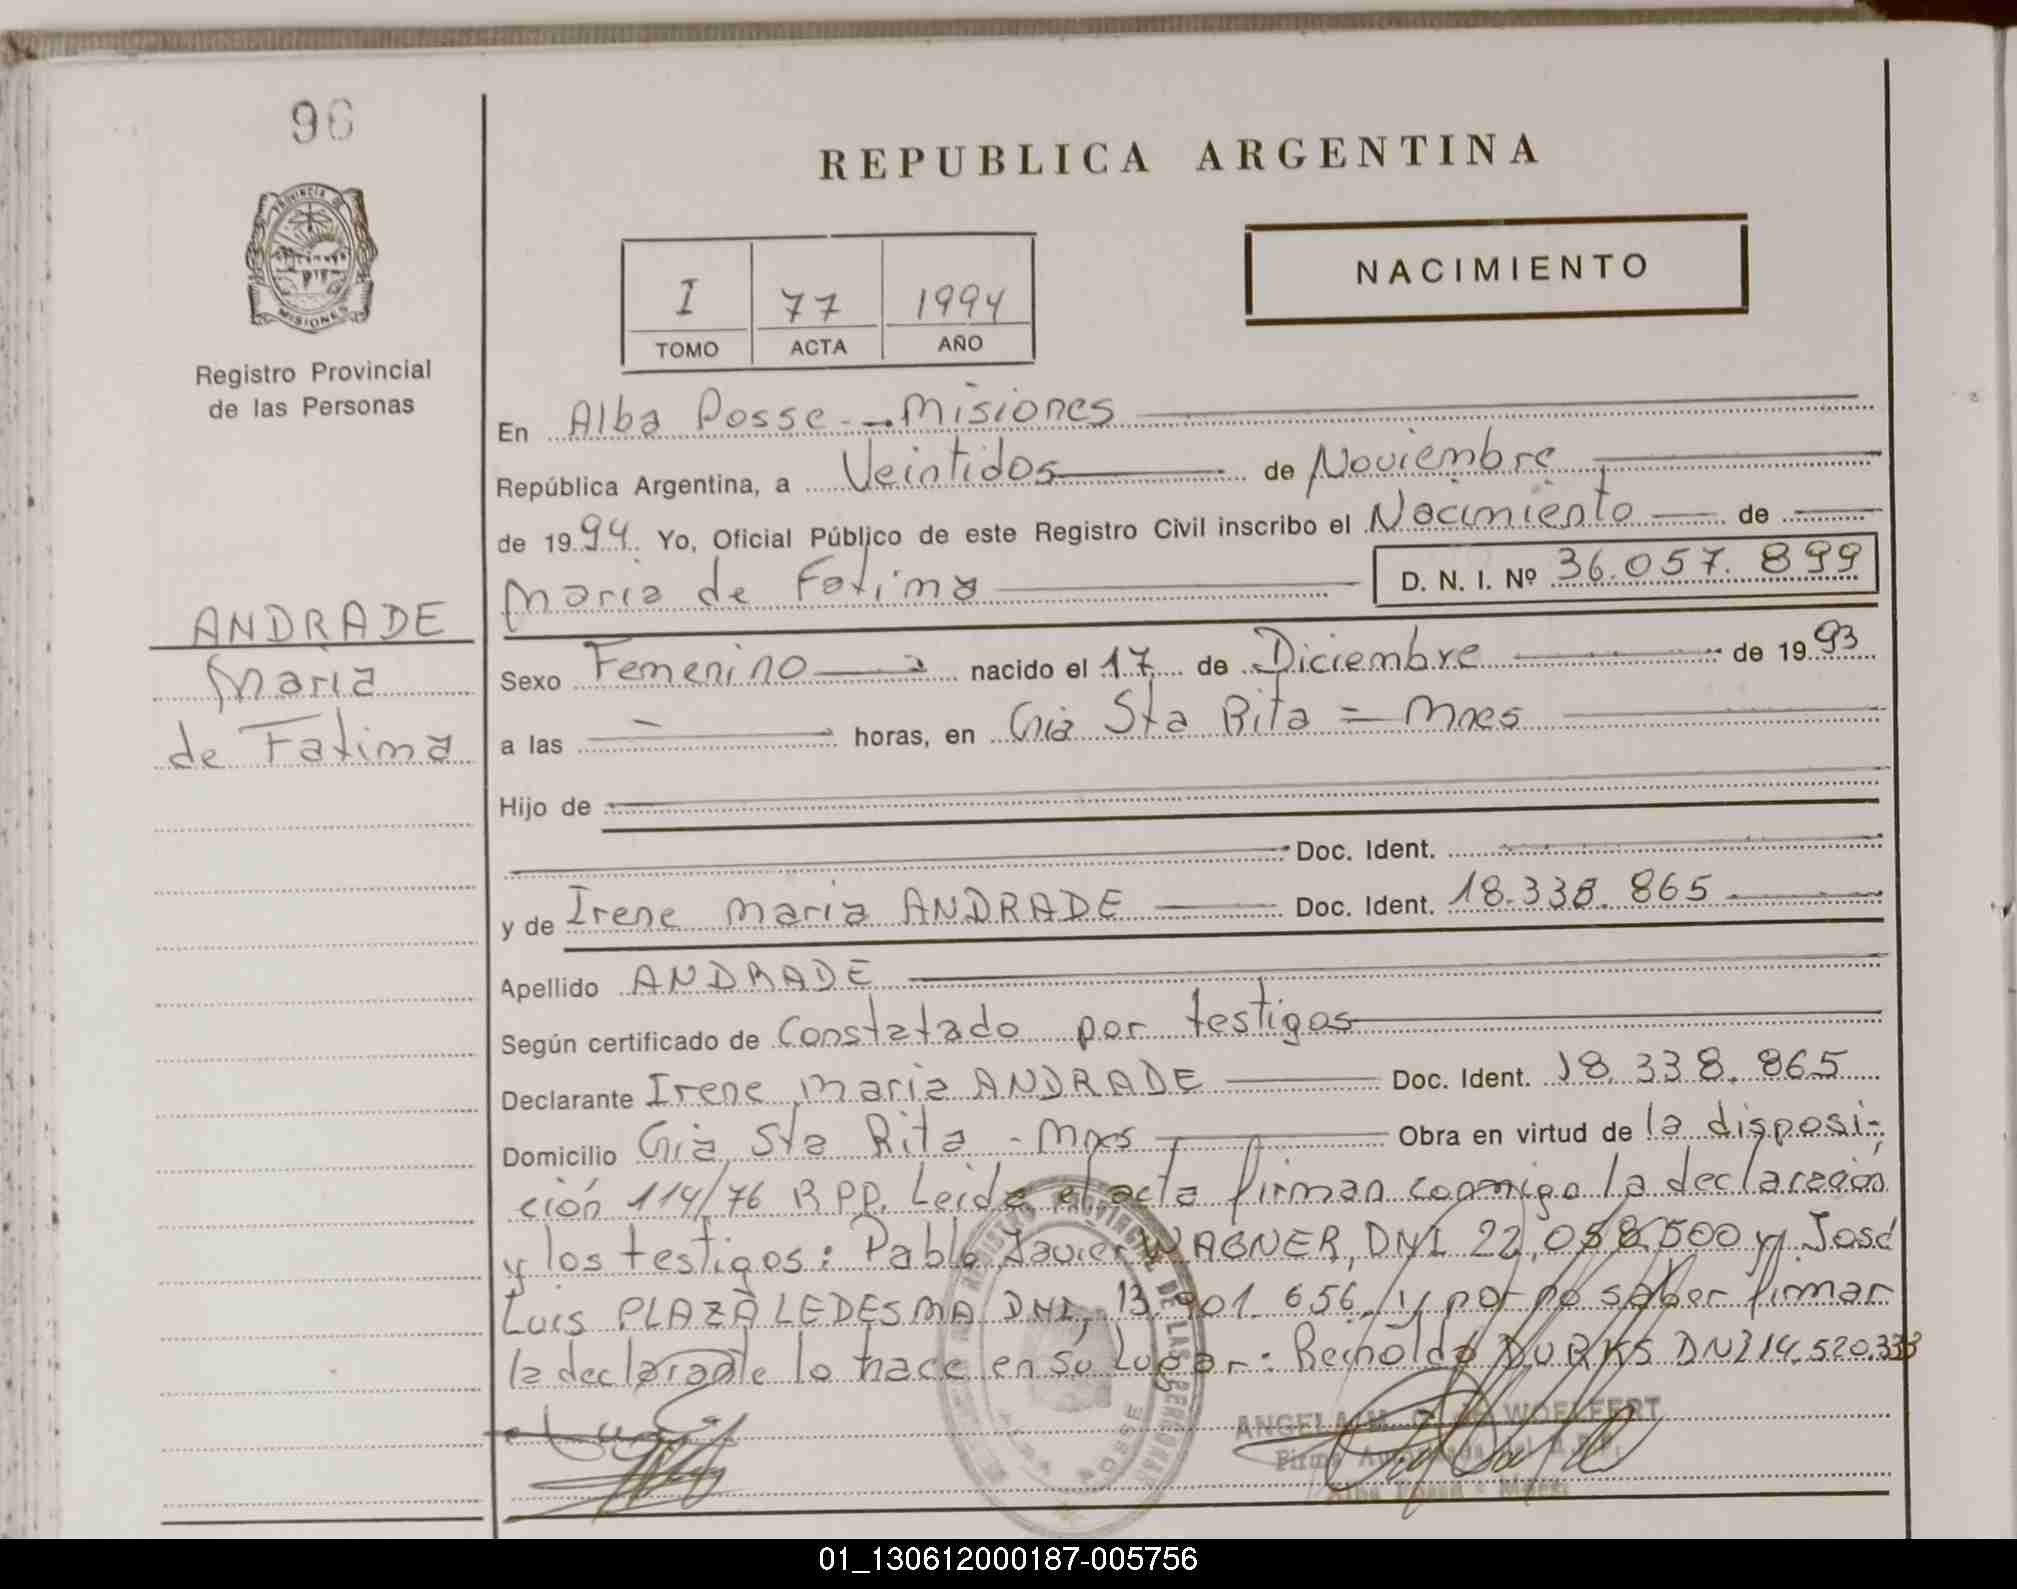 96
REPUBLICA ARGENTINA
PROVINCIA DE
MISIONES
NACIMIENTO
I 77 1994
TOMO ACTA AÑO
Registro Provincial
de las Personas
ANDRADE
Maria
de Fatima
En Alba Posse - Misiones
República Argentina, a Veintidos de Noviembre
de 1994. Yo, Oficial Público de este Registro Civil inscribo el Nacimiento de
Maria de Fatima D. N. I. Nº 36.057.899
Sexo Femenino nacido el 17 de Diciembre de 1993
a las horas, en Cnia Sta Rita = Mnes
Hijo de
Doc. Ident.
y de Irene Maria ANDRADE Doc. Ident. 18.338.865
Apellido ANDRADE
Según certificado de Constatado por testigos
Declarante Irene Maria ANDRADE Doc. Ident. 18.338.865
Domicilio Cnia Sta Rita - Mnes Obra en virtud de la disposi-
ción 114/76 RPP. Leida el acta firman conmigo la declaración
y los testigos: Pablo Javier WAGNER, DNI 22.058.500 y José
Luis PLAZA LEDESMA DNI, 13.901.656, y por no saber firmar
la declarante lo hace en su lugar: Reinoldo DURKS DNI 14.520.333
REGISTRO PROVINCIAL DE LAS PERSONAS
ALBA POSSE
ANGELA M. WOELFERT
Firma Autorizada del R.P.P.
Alba Posse - Mnes.
01_130612000187-005756